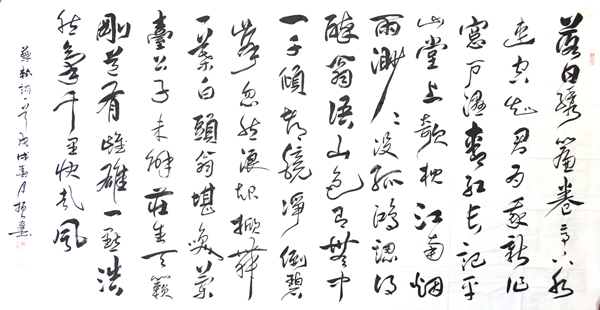 落日繡簾卷亭下水
連空知君为我新作
窓戶濕青红长記平
山堂上欹枕江南烟
雨渺〻没孤鴻認得
醉翁语山色有無中
一千傾都鏡淨倒碧
峯忽然浪起掀舞
一葉白頭翁堪笑蘭
臺公子未解莊生天籟
剛道有雌雄一點浩
然氣千里快哉風
蘇軾詞一首戊戌春月